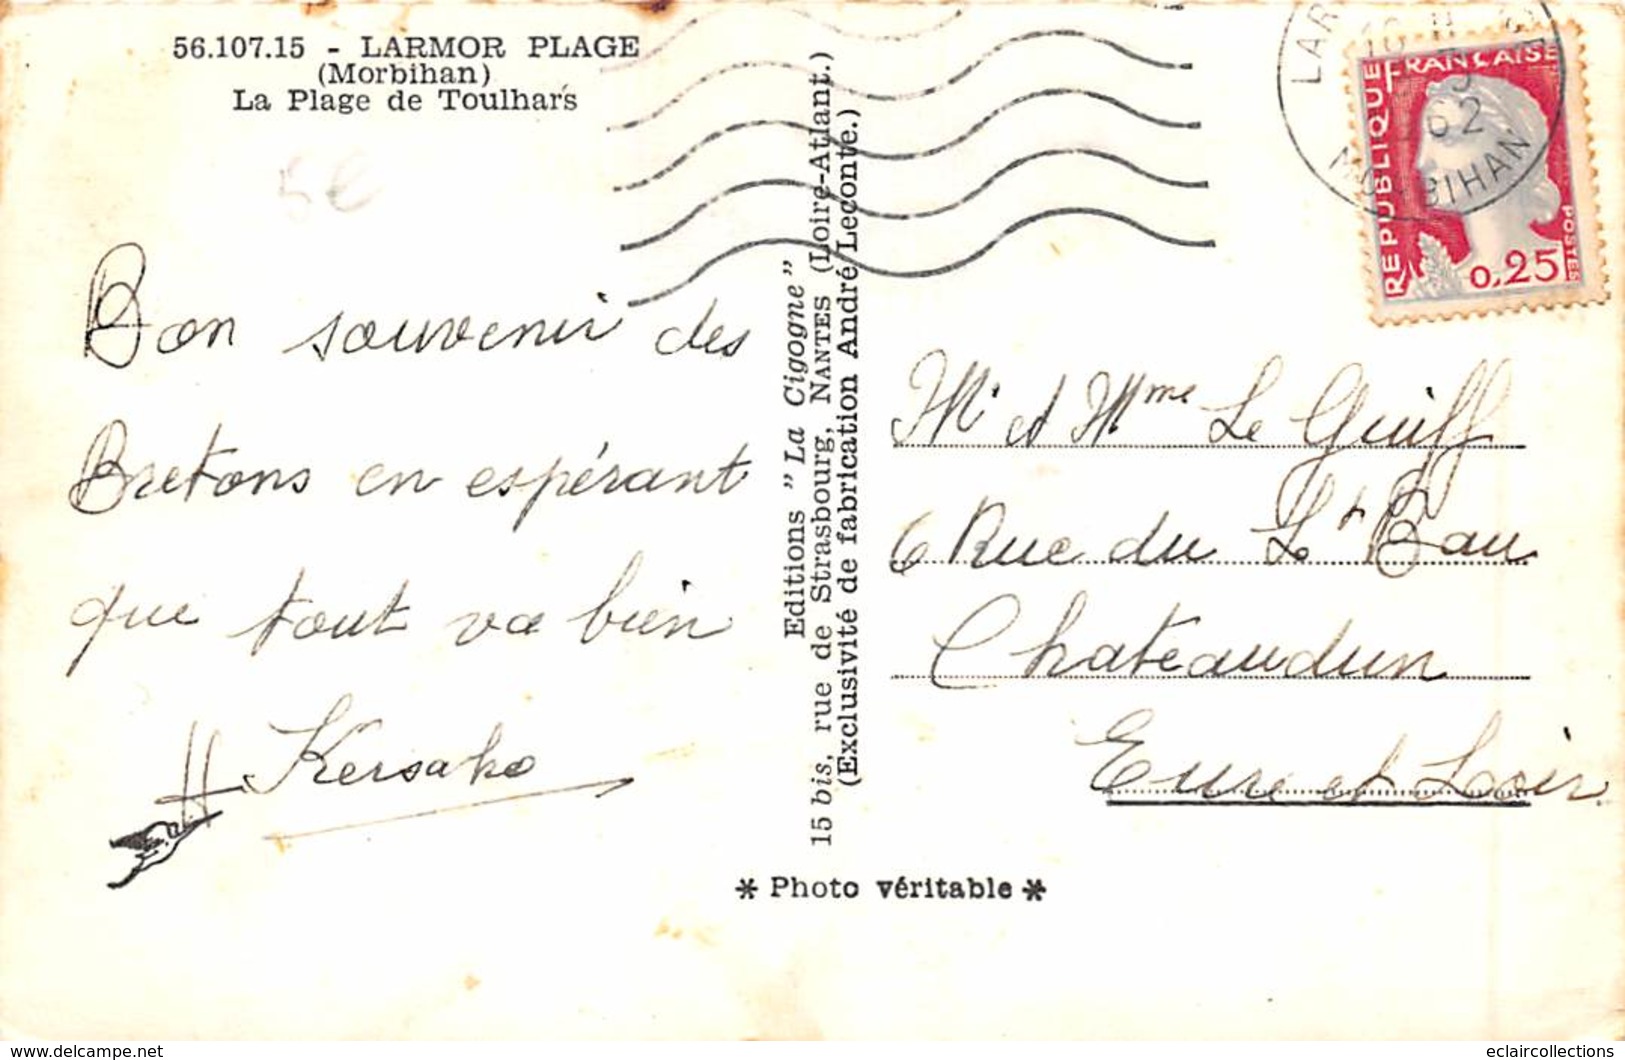 56.107.15 - LARMOR PLAGE
(Morbihan)
La Plage de Toulhars
5€
Bon souvenir des
Bretons en espérant
que tout va bien
Kersaho
Editions "La Cigogne"
15 bis, rue de Strasbourg, NANTES (Loire-Atlant.)
(Exclusivité de fabrication André Leconte.)
* Photo véritable *
LAR
62
MORBIHAN
REPUBLIQUE FRANÇAISE
POSTES
0,25
Mr et Mme Le Guiff
6 Rue du Lt
Chateaudun
Eure et Loir
delcampe.net
eclaircollections